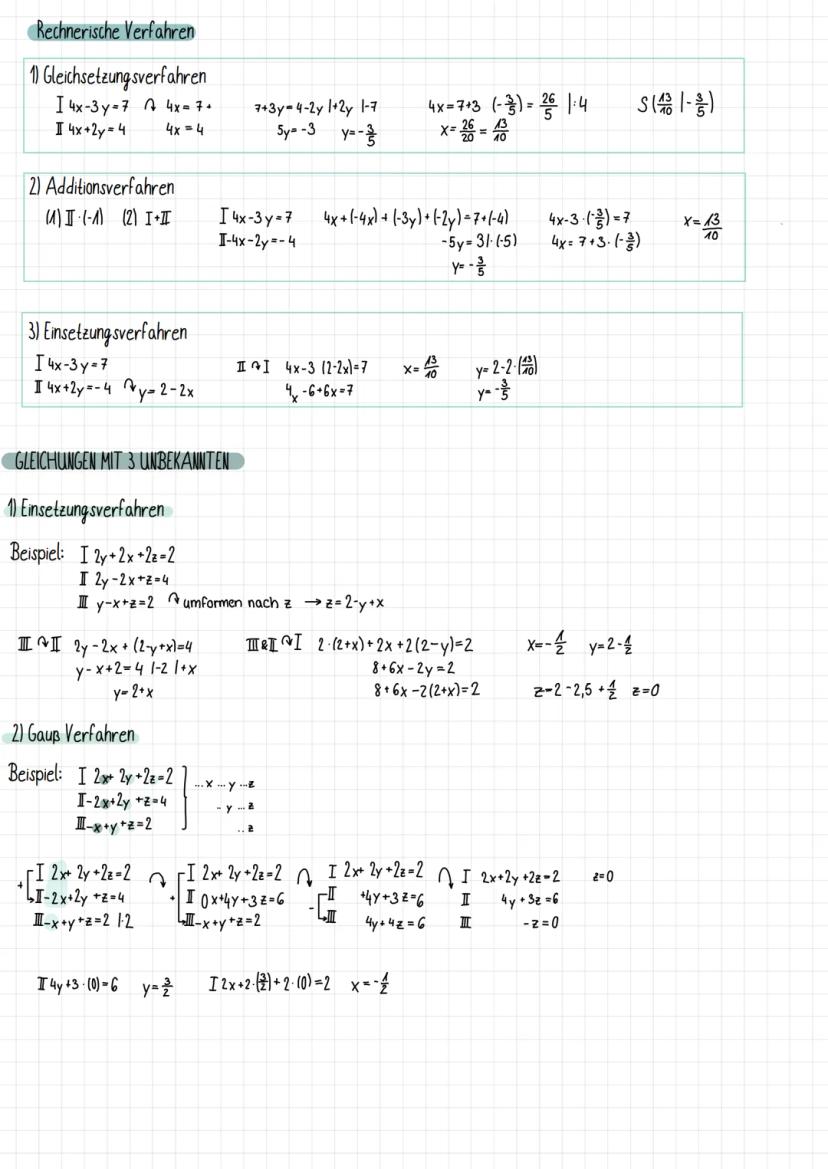 Rechnerische Verfahren
1) Gleichsetzungsverfahren
I 4x-3y=7 ↷ 4x=7+ 7+3y=4-2y |+2y |-7 4x=7+3 (-3/5) = 26/5 |:4 S(13/10 |-3/5)
II 4x+2y=4 4x=4 5y=-3 y=-3/5 x=26/20 = 13/10
2) Additionsverfahren
(1) II·(-1) (2) I+II I 4x-3y=7 4x+(-4x)+(-3y)+(-2y)=7+(-4) 4x-3·(-3/5)=7 x=13/10
II-4x-2y=-4 -5y=3|·(-5) 4x=7+3·(-3/5)
y=-3/5
3) Einsetzungsverfahren
I 4x-3y=7 II ↷ I 4x-3 (2-2x)=7 x=13/10 y=2-2·(13/10)
II 4x+2y=-4 ↷ y=2-2x 4x-6+6x=7 y=-3/5
GLEICHUNGEN MIT 3 UNBEKANNTEN
1) Einsetzungsverfahren
Beispiel: I 2y+2x+2z=2
II 2y-2x+z=4
III y-x+z=2 ↷ umformen nach z → z=2-y+x
III ↷ II 2y-2x+(2-y+x)=4 III&II ↷ I 2·(2+x)+2x+2(2-y)=2 x=-1/2 y=2-1/2
y-x+2=4 |-2 |+x 8+6x-2y=2
y=2+x 8+6x-2(2+x)=2 z=2-2,5+1/2 z=0
2) Gauß Verfahren
Beispiel: I 2x+2y+2z=2 ...x...y...z
II-2x+2y+z=4 ..y...z
III-x+y+z=2 ..z
+ I 2x+2y+2z=2 ↷ I 2x+2y+2z=2 ↷ I 2x+2y+2z=2 ↷ I 2x+2y+2z=2 z=0
II-2x+2y+z=4 + II 0x+4y+3z=6 - II +4y+3z=6 II 4y+3z=6
III-x+y+z=2 |·2 III-x+y+z=2 III 4y+4z=6 III -z=0
II 4y+3·(0)=6 y=3/2 I 2x+2·(3/2)+2·(0)=2 x=-1/2